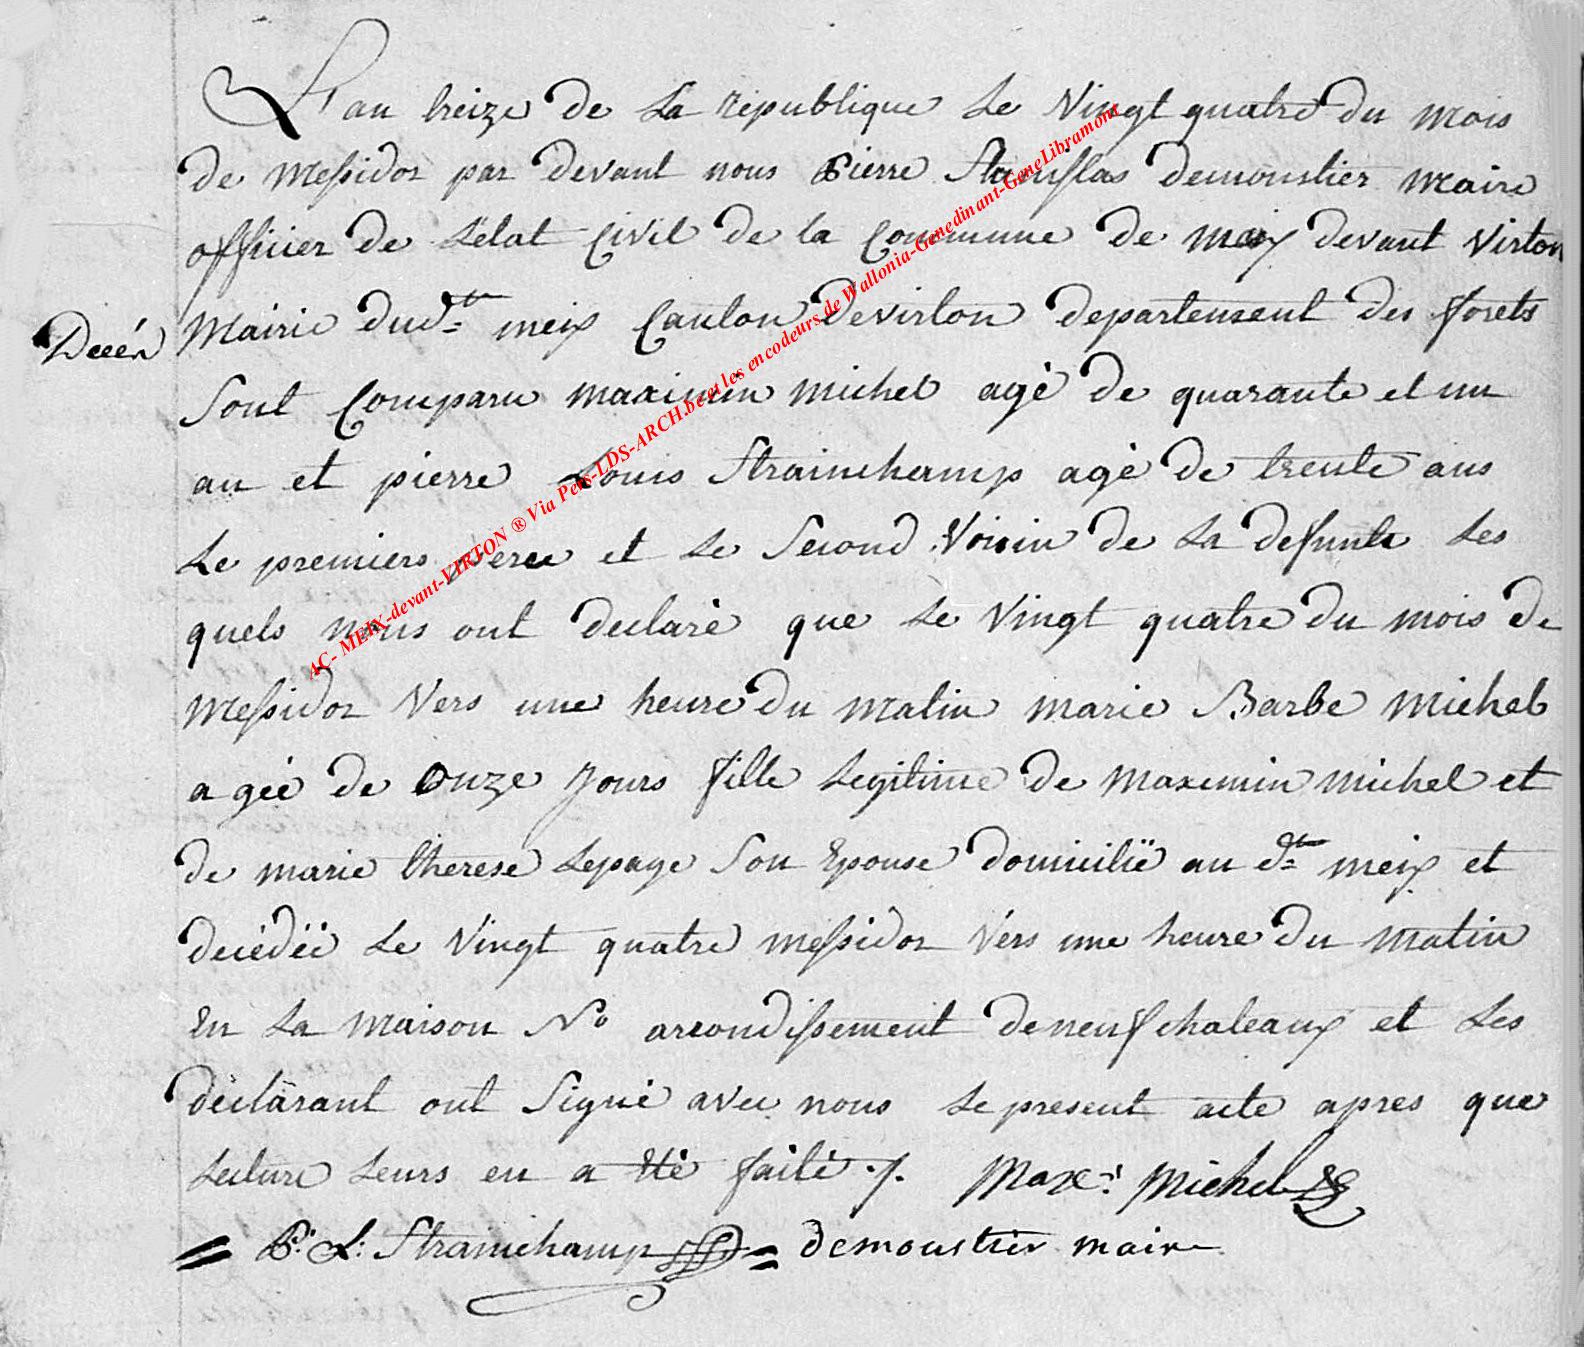 L'an treize de La république Le Vingt quatre du mois
de Messidor par devant nous Pierre Stanislas demoustier maire
officier de L'état Civil de la Commune de meix devant Virton
Décés
Mairie dudt meix Canton De virton departement des forets
Sont Comparu maximin michel agé de quarante et un
an et pierre Louis Strainchamp agé de trente ans
Le premiers pere et Le Second Voisin de La defunte Les
quels nous ont declaré que Le Vingt quatre du mois de
Messidor Vers une heure du matin marie Barbe Michel
agée de Onze Jours fille Legitime de maximin michel et
de marie therese Lepage Son Epouse domicilié au dt meix et
decédée Le Vingt quatre messidor Vérs une heure du matin
En La maison No arrondissement de neufchateaux et Les
déclarant ont Signé avec nous Le present acte apres que
Lecture Leurs en a été faite ./. Max: Michel
= P: L: Strainchamp = demoustier maire
AC- MEIX-devant-VIRTON ® Via Pers-LDS-ARCH.be et les encodeurs de Wallonia-Genedinant-GeneLibramont